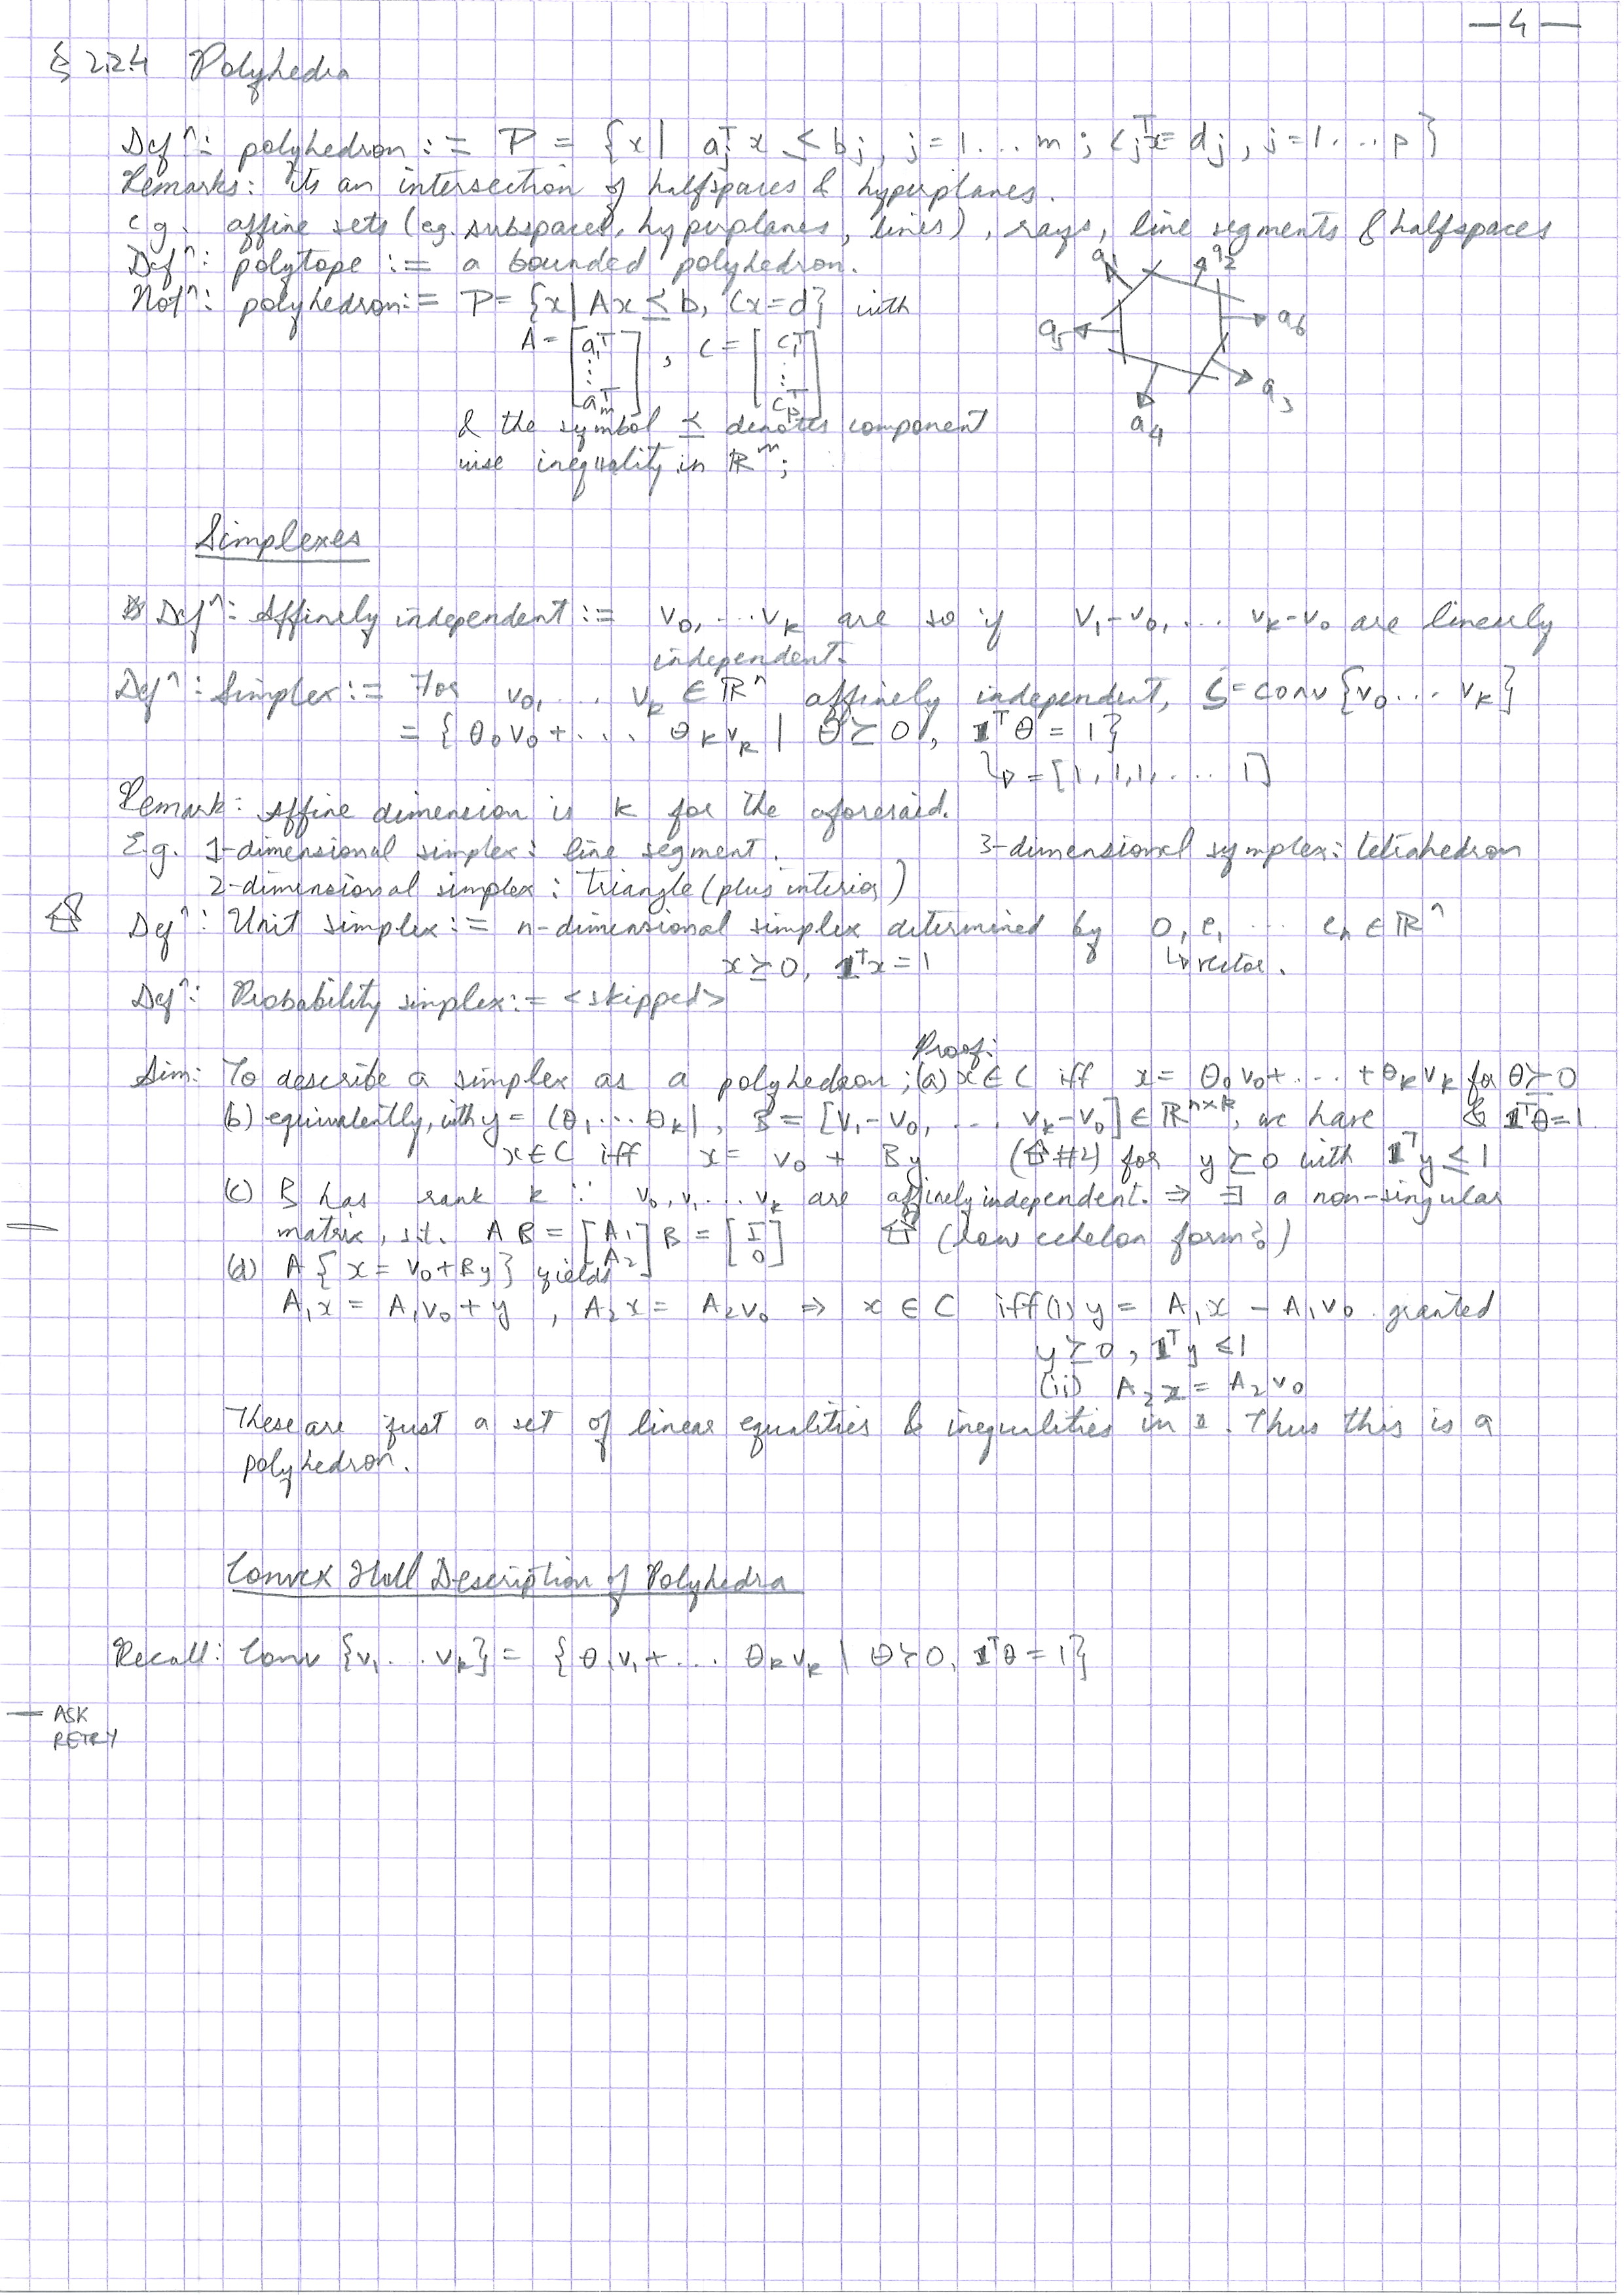 —4—
§ 2.2.4 Polyhedra
Defⁿ: polyhedron := P = {x | aⱼᵀx ≤ bⱼ, j=1...m ; cⱼᵀx = dⱼ, j=1...p}
Remarks: its an intersection of halfspaces & hyperplanes.
eg. affine sets (eg. subspaces, hyperplanes, lines), rays, line segments & halfspaces
Defⁿ: polytope := a bounded polyhedron.
Notⁿ: polyhedron := P = {x | Ax ⪯ b, Cx=d} with
A = [a₁ᵀ ⋮ aₘᵀ], C = [c₁ᵀ ⋮ cₚᵀ]
a₁ a₂ a₆ a₅ a₃ a₄
& the symbol ⪯ denotes component
wise inequality in ℝᵐ;
Simplexes
Defⁿ: Affinely independent := v₀, ... vₖ are so if v₁-v₀, ... vₖ-v₀ are linearly
independent.
Defⁿ: Simplex := For v₀, ... vₖ ∈ ℝⁿ affinely independent, C = conv {v₀... vₖ}
= {θ₀v₀+... θₖvₖ | θ⪰0, 1ᵀθ = 1}
↳ = [1,1,1,... 1]
Remark: Affine dimension is k for the aforesaid.
E.g. 1-dimensional simplex: line segment. 3-dimensional symplex: tetrahedron
2-dimensional simplex: triangle (plus interior)
Defⁿ: Unit simplex := n-dimensional simplex determined by 0, e₁ ... eₙ ∈ ℝⁿ
x⪰0, 1ᵀx = 1 ↳ vector.
Defⁿ: Probability simplex := <skipped>
Proof:
Aim: To describe a simplex as a polyhedron; (a) x∈C iff x = θ₀v₀+...+θₖvₖ for θ⪰0
(b) equivalently, with y = (θ₁...θₖ), B = [v₁-v₀, ... vₖ-v₀] ∈ ℝⁿˣᵏ, we have & 1ᵀθ=1.
x∈C iff x = v₀ + By (⇧#2) for y⪰0 with 1ᵀy ≤ 1
(c) B has rank k ∵ v₀,v₁...vₖ are affinely independent. ⇒ ∃ a non-singular
matrix, s.t. AB = [A₁ A₂] B = [I 0] ⇧ (low echelon form?)
(d) A {x = v₀+By} yields
A₁x = A₁v₀+y , A₂x = A₂v₀ ⇒ x∈C iff (i) y = A₁x - A₁v₀ granted
y⪰0, 1ᵀy ≤1
(ii) A₂x = A₂v₀
These are just a set of linear equalities & inequalities in x. Thus this is a
polyhedron.
Convex Hull Description of Polyhedra
Recall: Conv {v₁...vₖ} = {θ₁v₁+... θₖvₖ | θ⪰0, 1ᵀθ=1}
— ASK
RETRY